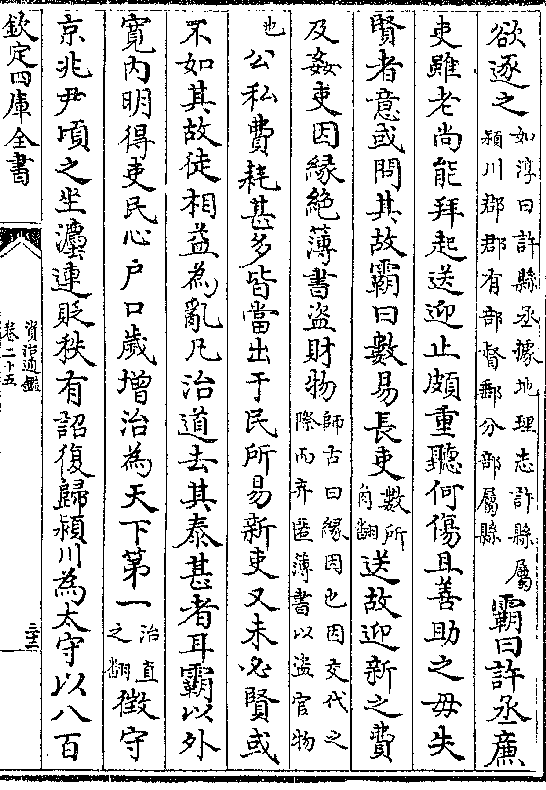 欲逐之如淳曰許縣丞據地理志許縣屬潁川郡郡有部督郵分部屬縣霸曰許丞亷
吏雖老尚能拜起送迎止頗重聽何傷且善助之毋失
賢者意或問其故霸曰數易長吏數所角翻送故迎新之費
及姦吏因緣絶薄書盜財物師古曰緣因也因交代之際而弃匿薄書以盜官物
也公私費耗甚多皆當出于民所易新吏又未必賢或
不如其故徒相益為亂凡治道去其泰甚者耳霸以外
寛内明得吏民心户口歲增治為天下第一治直之翻徵守
京兆尹頃之坐灋連貶秩有詔復歸潁川為太守以八百
欽定四庫全書
資治通鑑
卷二十五